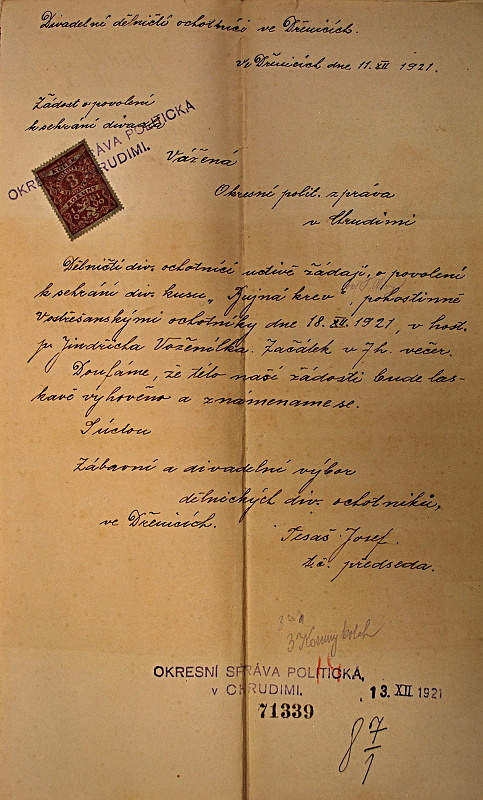 Divadelní dělničtí ochotníci ve Dřenicích.
Ve Dřenicích dne 11. XII 1921.
Žádost o povolení
k sehrání divadla
OKRESNÍ SPRÁVA POLITICKÁ
v CHRUDIMI.
Vážená
Okresní polit. zpráva
v Chrudimi
Dělničtí div. ochotníci uctivě žádají, o povolení
k sehrání div. kusu „Bujná krev", pohostinně
Vestřišanskými ochotníky dne 18. XII. 1921, v host.
p. Jindřicha Voženílka. Začátek v 7h. večer.
Doufáme, že této naší žádosti bude las-
kavě vyhověno a znamenáme se.
S úctou
Zábavní a divadelní výbor
dělnických div. ochotníků,
ve Dřenicích.
Tesař Josef.
t.č. předseda.
3 Koruny kolek
OKRESNÍ SPRÁVA POLITICKÁ,
v CHRUDIMI.
13. XII. 1921
71339
8 7/1